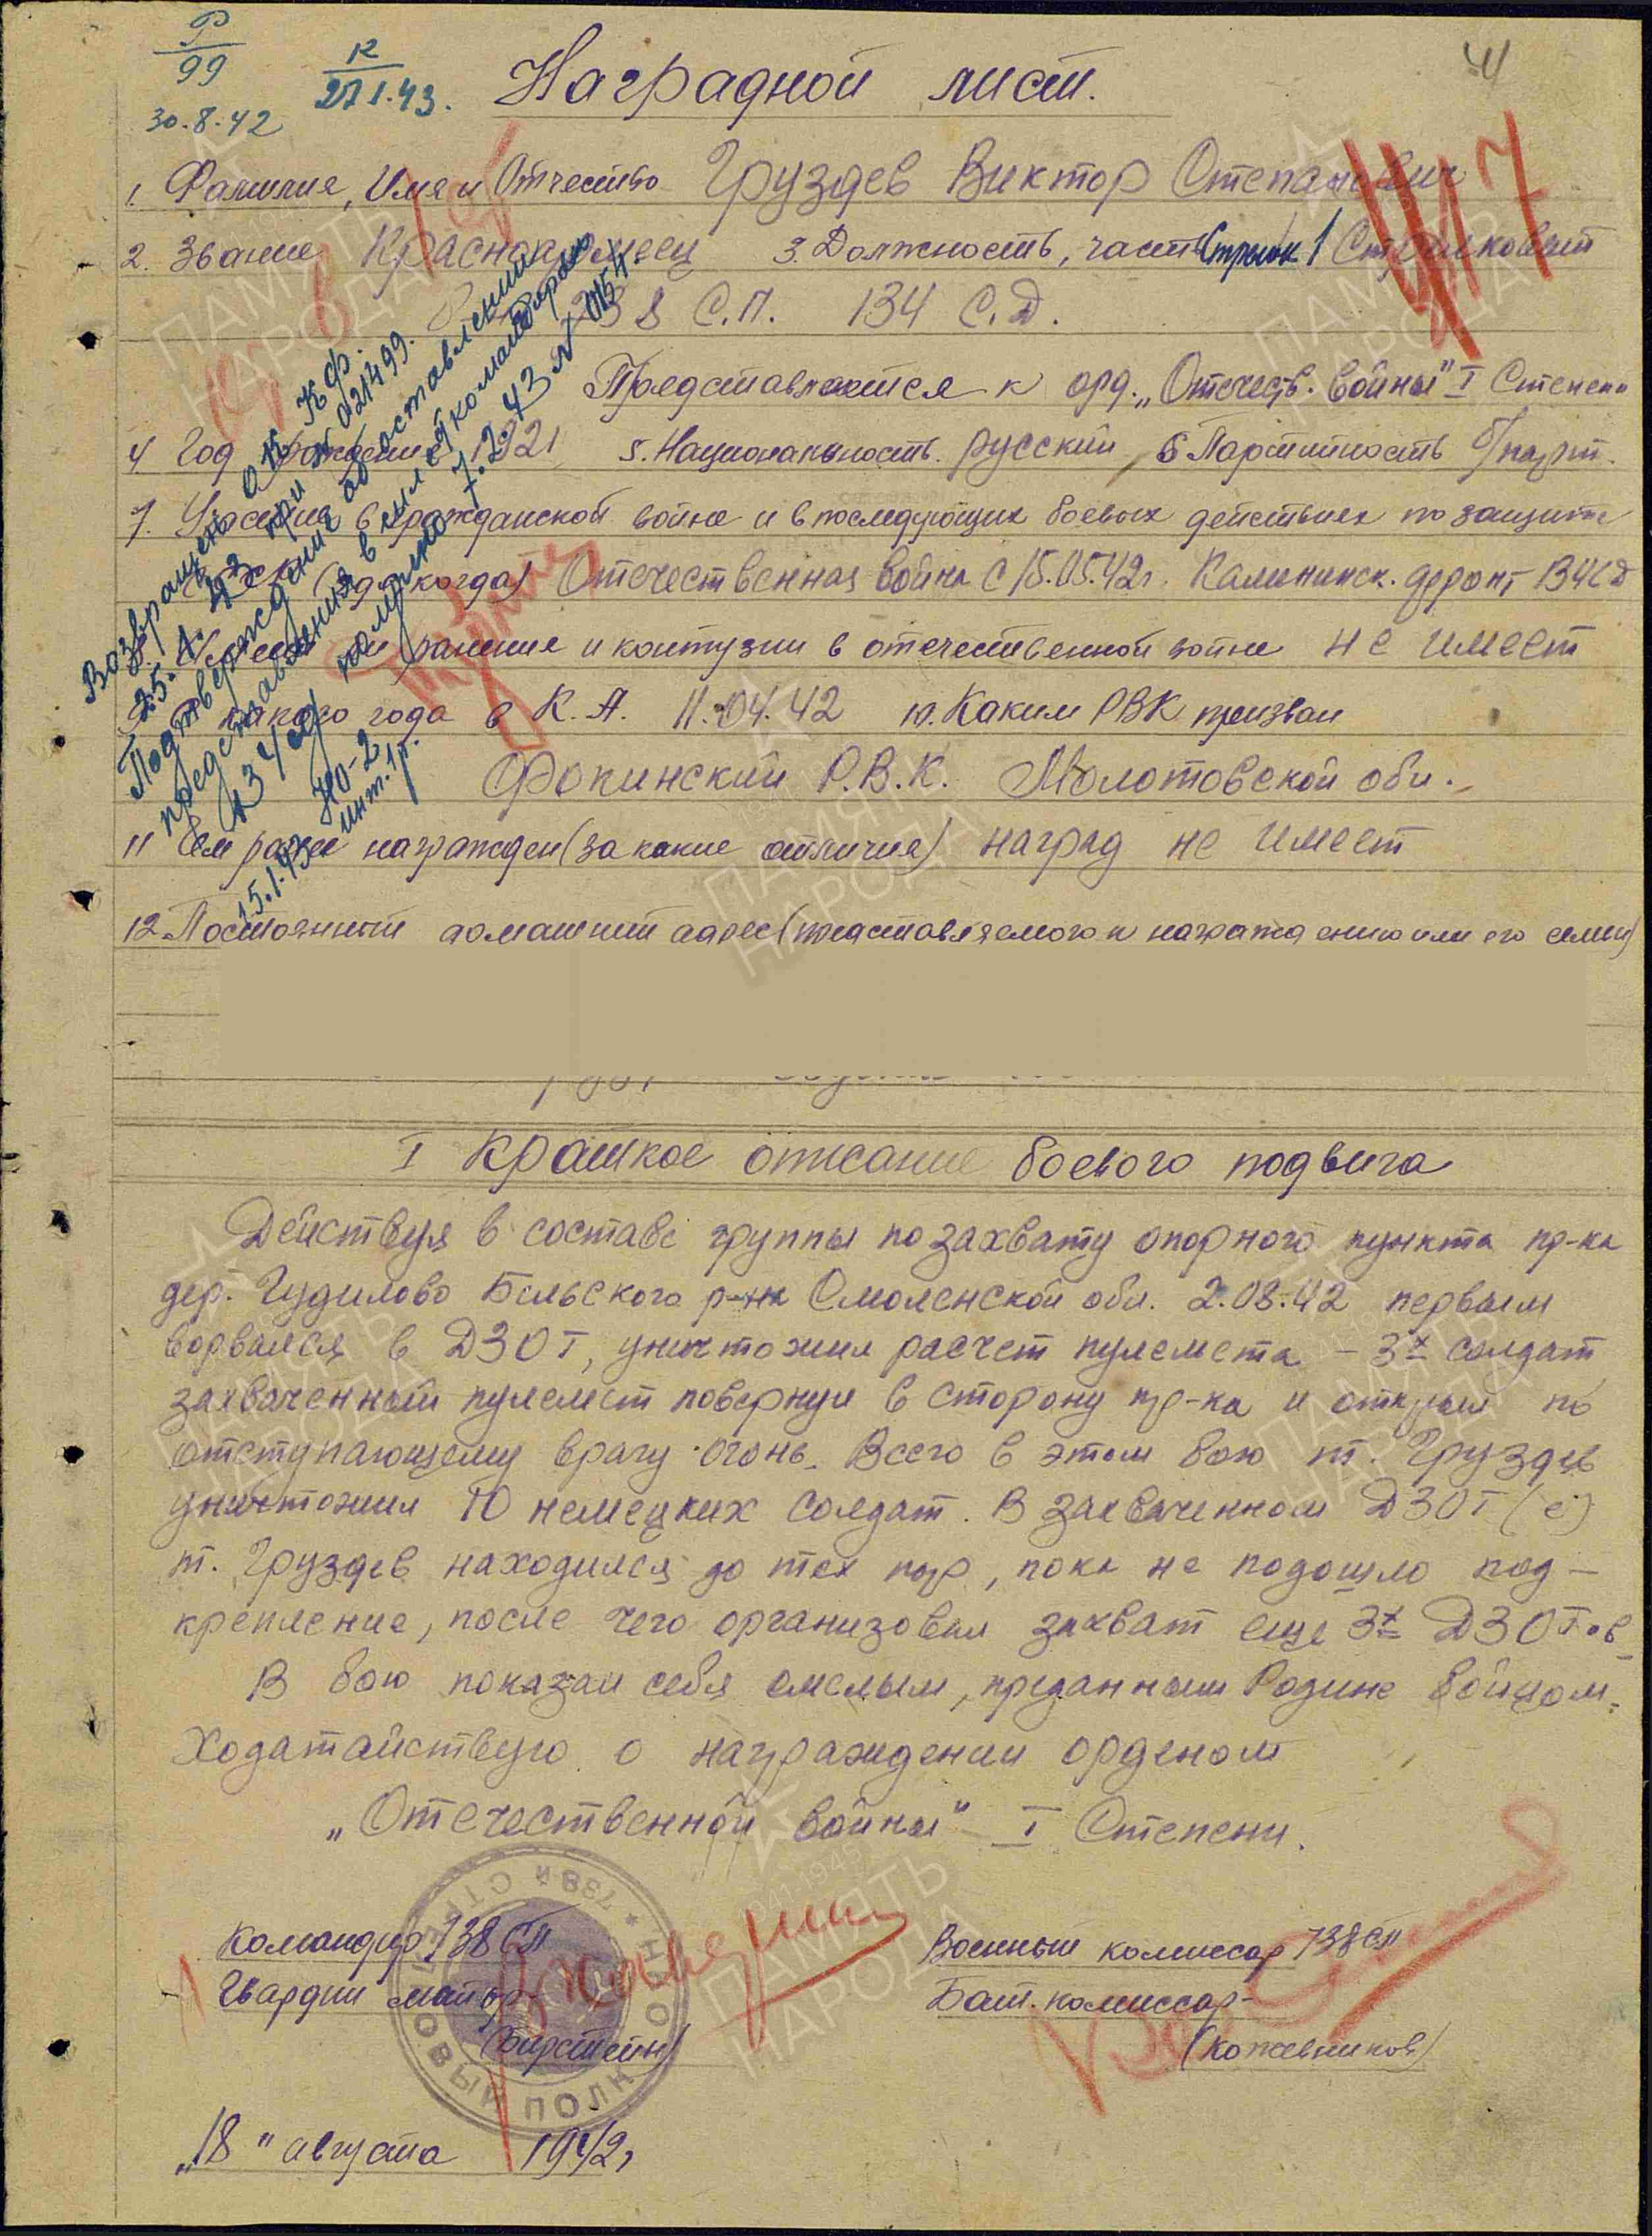 Р
99
30.8.42
К
27.1.43.
Наградной лист.
1. Фамилия, Имя и Отчество Груздев Виктор Степанович
2. Звание Красноармеец 3. Должность, часть Стрелок 1 Стрелковый
738 С.П. 134 С.Д.
Представляется к орд. „Отечеств. войны" I Степени
4 Год рождения 1921 5. Национальность. русский 6 Партийность б/парт.
7. Участие в гражданской войне и в последующих боевых действиях по защите
СССР (где когда) Отечественная война с 15.05.42г. Калининск. фронт 134СД
8. Имеет ли ранения и контузии в отечественной войне не имеет
9. С какого года в К.А. 11.04.42 10. Каким РВК призван
Фокинский Р.В.К. Молотовской обл.
11 Чем ранее награжден (за какие отличия) наград не имеет
12. Постоянный домашний адрес (представляемого к награждению или его семьи)
Возвращено ОК КФ.
25.1.43 при № 021499.
Подтверждение об оставлении
представления в силе командиром
134 сд получено 7.2.43 № 0154.
НО-2
15.1.43 инт. 1р.
I Краткое описание боевого подвига
Действуя в составе группы по захвату опорного пункта пр-ка
дер. Гудилово Бельского р-на Смоленской обл. 2.08.42 первым
ворвался в ДЗОТ, уничтожил расчет пулемета – 3х солдат
захваченный пулемет повернул в сторону пр-ка и открыл по
отступающему врагу огонь. Всего в этом бою т. Груздев
уничтожил 10 немецких солдат. В захваченном ДЗОТ (е)
т. Груздев находился до тех пор, пока не подошло под-
крепление, после чего организовал захват еще 3х ДЗОТ-ов
В бою показал себя смелым, преданным Родине бойцом.
Ходатайствую о награждении орденом
„Отечественной войны" I Степени.
Командир 738 СП
Гвардии майор-
(Бирштейн)
Военный комиссар 738 СП
Бат. комиссар-
(Кожевников)
738й СТРЕЛКОВЫЙ ПОЛК
„18" августа 1942г
ПАМЯТЬ
НАРОДА
1941-1945